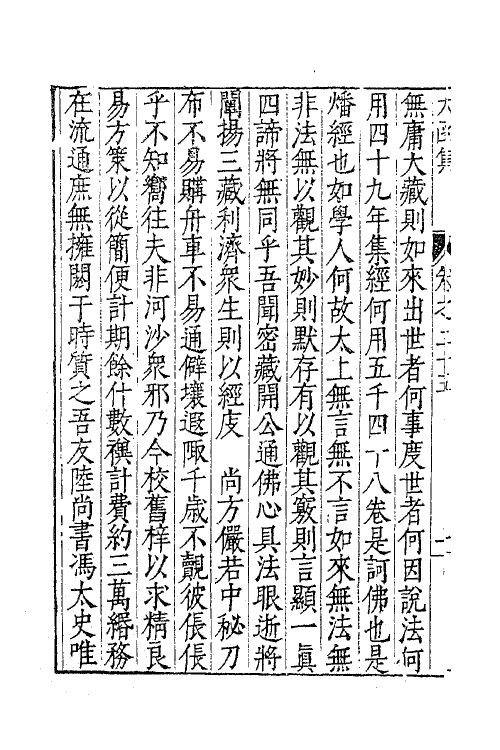 太函集　卷之二十五
無庸大藏則如來出世者何事度世者何因說法何
用四十九年集經何用五千四十八卷是訶佛也是
燔經也如學人何故太上無言無不言如來無法無
非法無以觀其妙則默存有以觀其竅則言顯一眞
四諦將無同乎吾聞密藏開公通佛心具法眼逝將
闡揚三藏利濟衆生則以經庋　尚方儼若中秘刀
布不易購舟車不易通僻壤遐陬千歲不覿彼倀倀
乎不知嚮往夫非河沙衆邪乃今校舊梓以求精良
易方策以從簡便計期餘什數禩計費約三萬緡務
在流通庶無擁閼于時質之吾友陸尚書馮太史唯